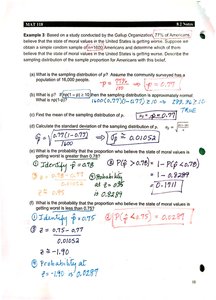 MAT 118
8.2 Notes
Example 3 Based on a study conducted by the Gallup Organization, 77% of Americans
believe that the state of moral values in the United States is getting worse. Suppose we
obtain a simple random sample of n=1600 Americans and determine which of them
believe that the state of moral values in the United States is getting worse. Describe the
sampling distribution of the sample proportion for Americans with this belief.
(a) What is the sampling distribution of p̂? Assume the community surveyed has a
population of 16,000 people.
p̂ = 0.77
(b) What is p̂? If np(1-p) ≥ 10 then the sampling distribution is approximately normal.
What is np(1-p)?
1600(0.77)(1-0.77) ≥ 10 → 283.36 ≥ 10
TRUE
(c) Find the mean of the sampling distribution of p̂.
= p̂ = 0.77
(d) Calculate the standard deviation of the sampling distribution
σp̂ = √ 0.77(1-0.77)
1600
= 0.01052
(e) What is the probability that the proportion who believe the state of moral values is
getting worse is greater than 0.78?
① Identify p̂ = 0.78
P(p̂ > 0.78) = 1 - P(p̂ < 0.78)
② Probability
at z = 0.95
is 0.8289
= 1 - 0.8289
= 0.1711
(f) What is the probability that the proportion who believe the state of moral values is
getting worse is less than 0.75?
① Identify p̂ = 0.75
② z = 0.75 - 0.77
0.01052
z = -1.90
③ P(p̂ < 0.75) = 0.0287
④ Probability at
z = -1.90 is 0.0287
18